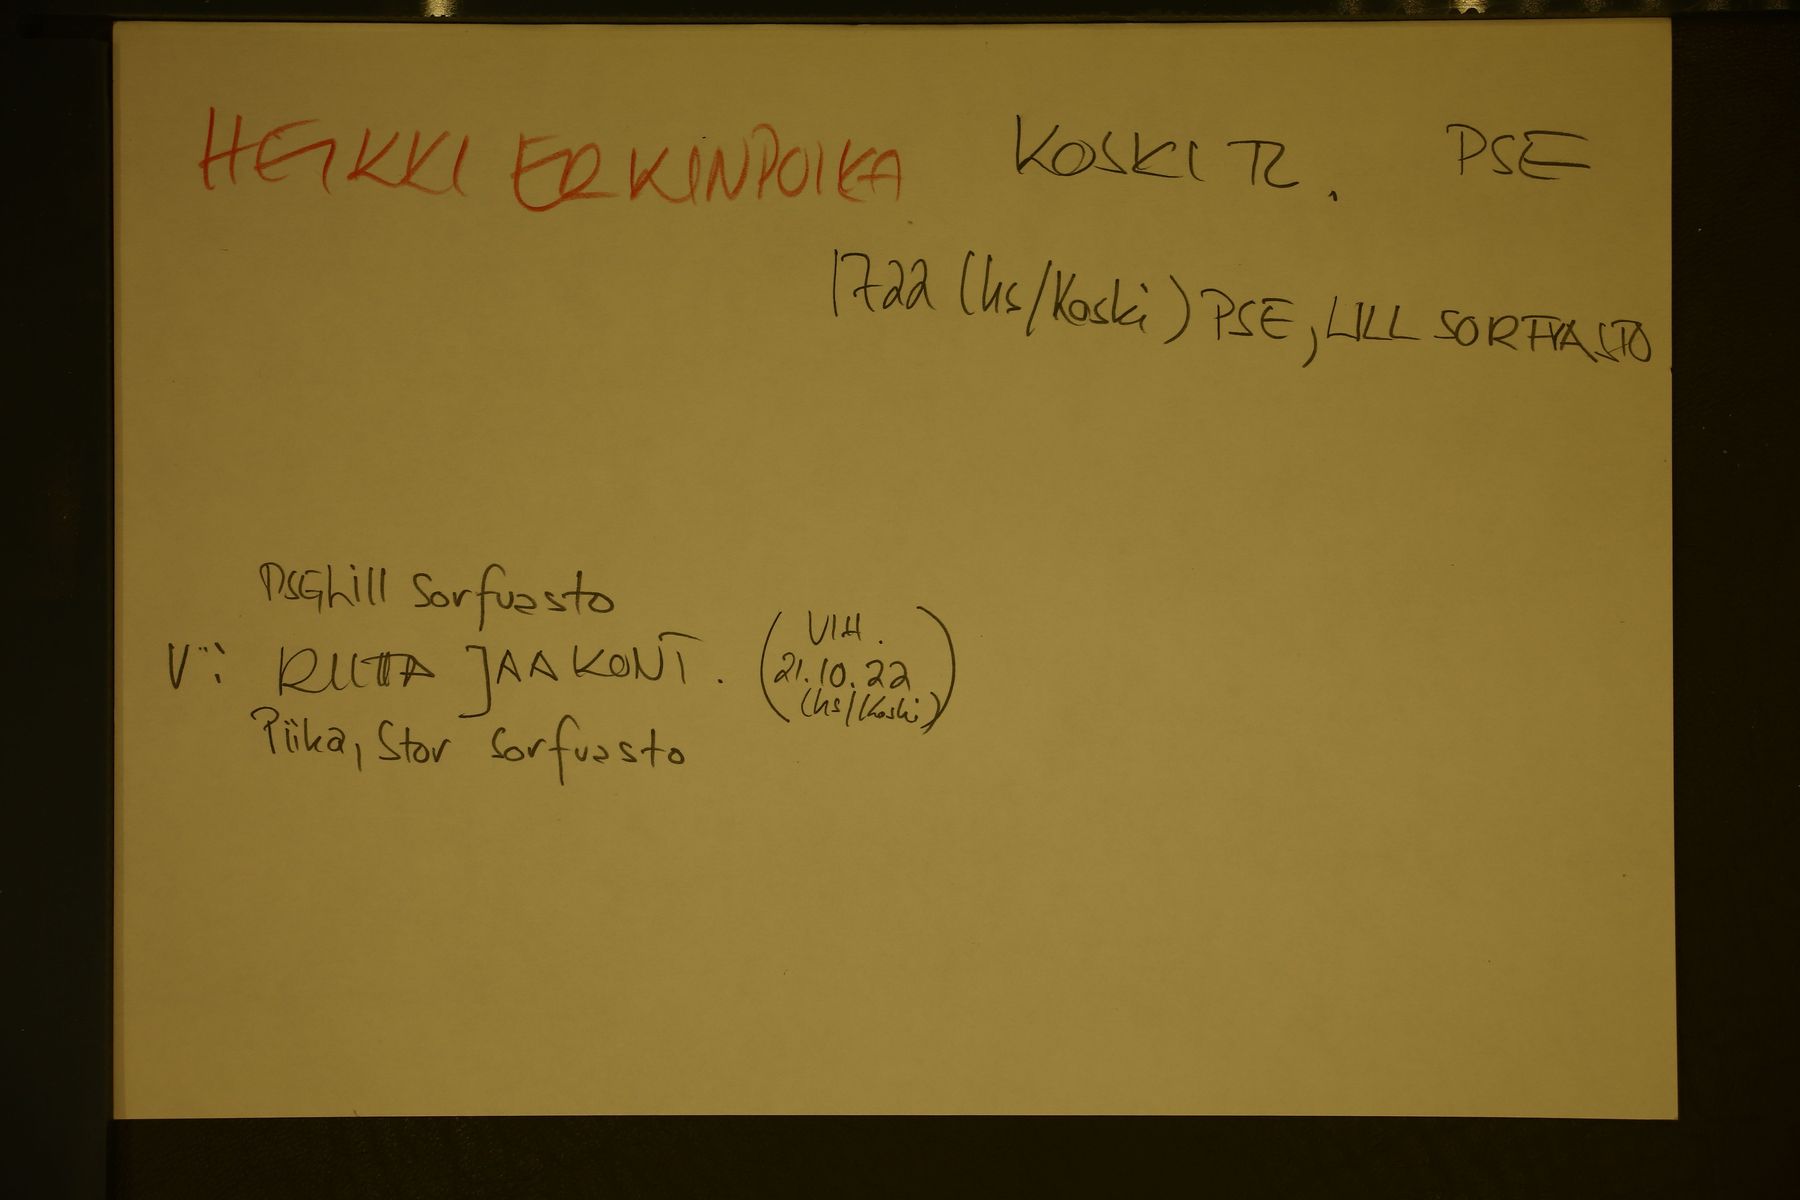 HEIKKI ERKINPOIKA KOSKI TL. PSE
1722 (hs/Koski) PSE, LILL SORFVASTO
PSE Lill Sorfvasto
V:: RIITTA JAAKONT. (VIH.
21.10.22
(hs/Koski))
Piika, Stor Sorfvasto